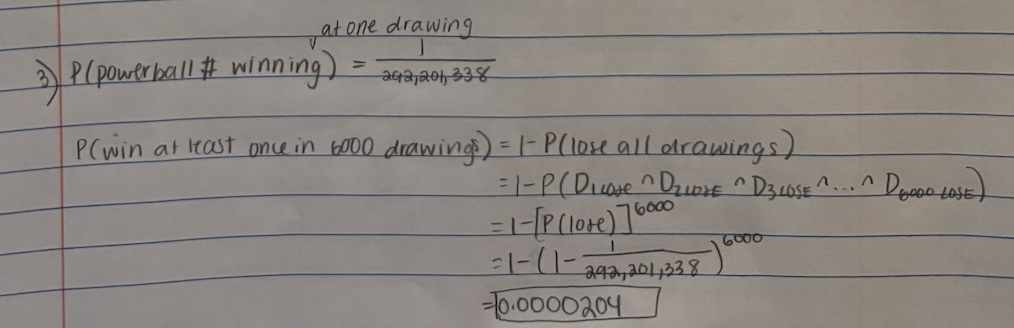 at one drawing
3) P(powerball # winning) = 1/292,201,338
P(win at least once in 6000 drawings) = 1 - P(lose all drawings)
= 1 - P(D1 LOSE ∩ D2 LOSE ∩ D3 LOSE ∩ ... ∩ D6000 LOSE)
= 1 - [P(lose)]^6000
= 1 - (1 - 1/292,201,338)^6000
= 0.0000204